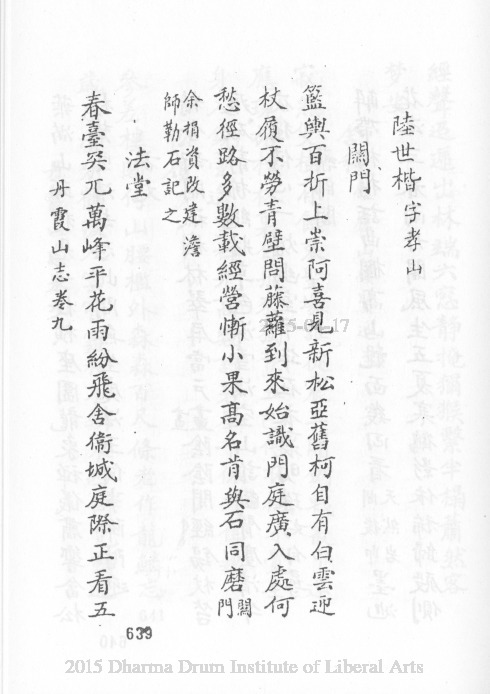 陸世楷字孝山
關門
籃輿百折上崇阿喜見新松亞舊柯自有白雲迎
杖履不勞青壁問藤蘿到來始識門庭廣入處何
愁徑路多數載經營慚小果高名肯與石同磨關門
余捐資改建澹
師勒石記之
法堂
春臺突兀萬峰平花雨紛飛舍衛城庭際正看五
丹霞山志卷九
639
2015 Dharma Drum Institute of Liberal Arts